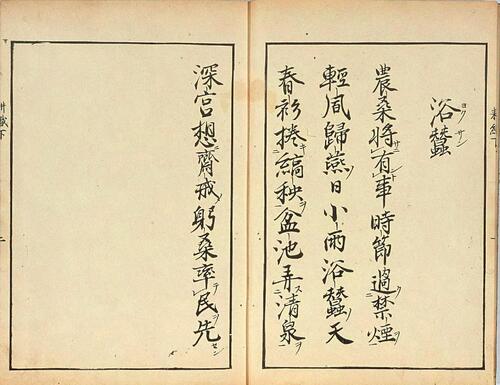 浴蠶
ヨク サン
農桑將有事時節過禁煙
輕風歸燕日小雨浴蠶天
春衫捲縞袂盆池弄清泉
深宮想齊戒躬桑率民先